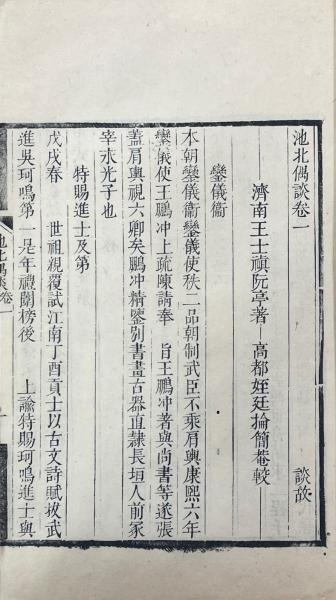 池北偶談卷一　談故
濟南王士禛阮亭著　高都姪廷掄簡菴較
鑾儀衞
本朝鑾儀衞鑾儀使秩二品朝制武臣不乘肩輿康熙六年
鑾儀使王鵬冲上疏陳請奉　旨王鵬冲著與尚書等遂張
蓋肩輿視六卿矣鵬冲精鑒別書畫古器直隷長垣人前冢
宰永光子也
特賜進士及第
戊戌春　世祖親覆試江南丁酉貢士以古文詩賦拔武
進吳珂鳴第一是年禮闈榜後　上諭特賜珂鳴進士與
池北偶談卷一